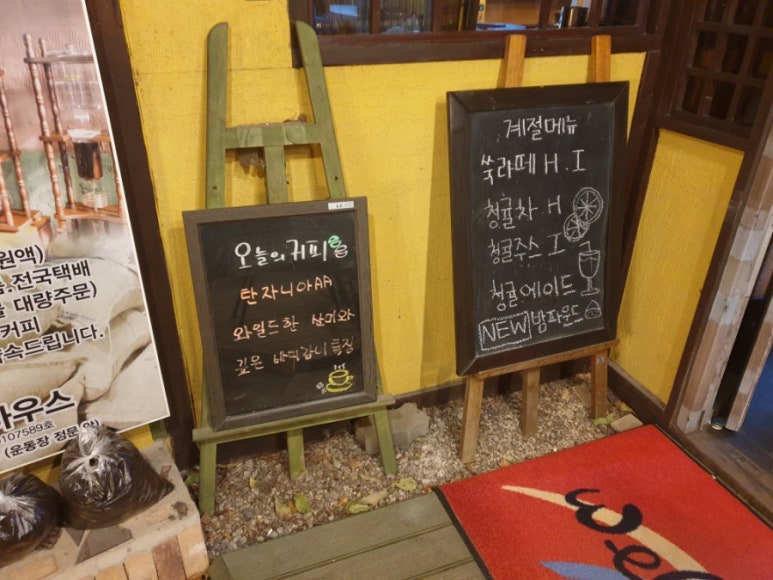 원액)
전국택배
대량주문)
커피
속드립니다.
하우스
0107589호
(운동장 정문 앞)
오늘의 커피
탄자니아AA
와일드한 산미와
깊은 바디감이 특징
계절메뉴
쑥라떼 H.I
청귤차 H
청귤주스 I
청귤에이드
NEW 밤파운드
wel